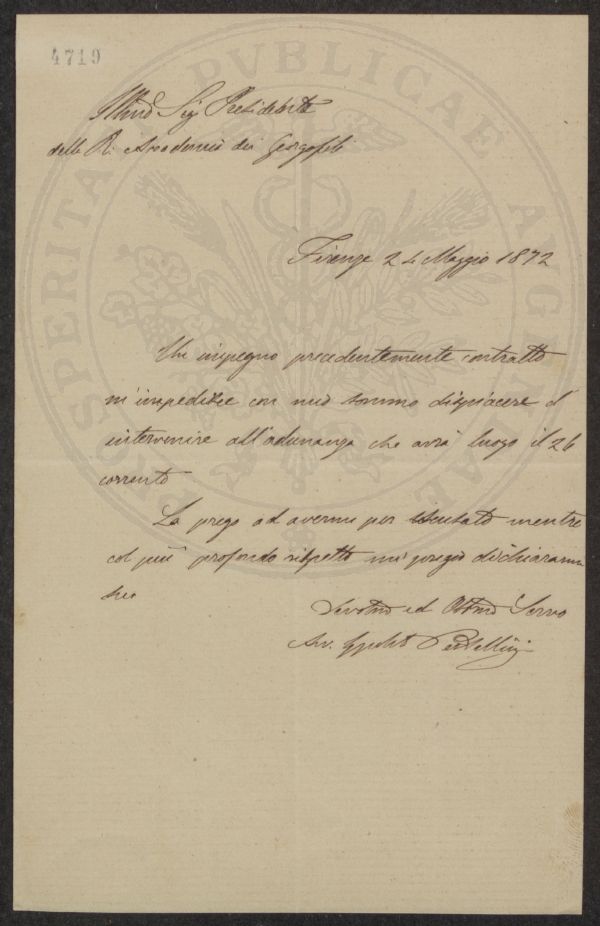 4719
PROSPERITATI PVBLICAE AVGENDAE
Illmo Sig Presidente
della R. Accademia dei Georgofili
Firenze 24 Maggio 1872
Un impegno precedentemente contratto
m'impedisce con mio sommo dispiacere d'
intervenire all'adunanza che avrà luogo il 26
corrente
La prego ad avermi per iscusato mentre
col più profondo rispetto mi pregio dichiararmi
suo
Devotmo ed Obbmo Servo
Avv.